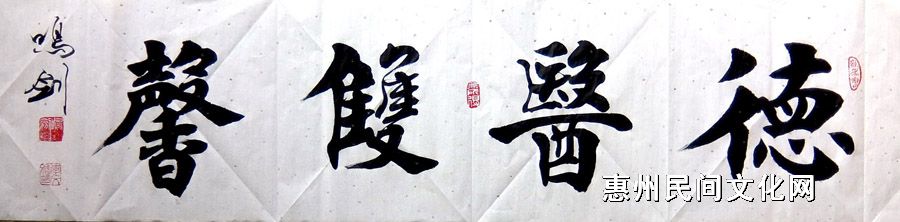 德醫雙馨
鸣剑
惠州民间文化网